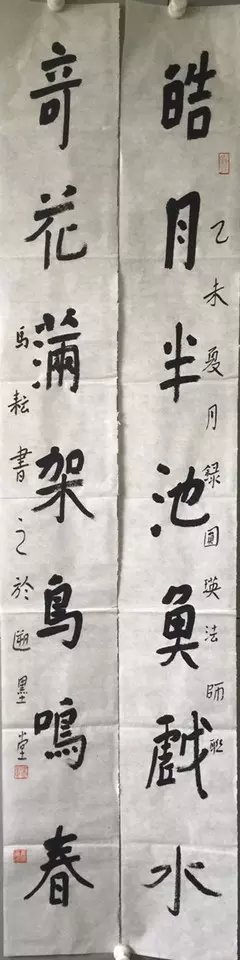 皓月半池魚戲水
乙未夏月録圓瑛法師聯
奇花滿架鳥鳴春
馬耘書之於遯墨堂